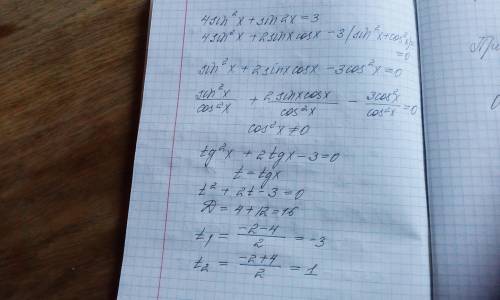 4sin²x + sin2x = 3
4sin²x + 2sinxcosx - 3(sin²x + cos²x) = 0
sin²x + 2sinxcosx - 3cos²x = 0
sin²x/cos²x + 2sinxcosx/cos²x - 3cos²x/cos²x = 0
cos²x ≠ 0
tg²x + 2tgx - 3 = 0
t = tgx
t² + 2t - 3 = 0
D = 4 + 12 = 16
t₁ = (-2-4)/2 = -3
t₂ = (-2+4)/2 = 1